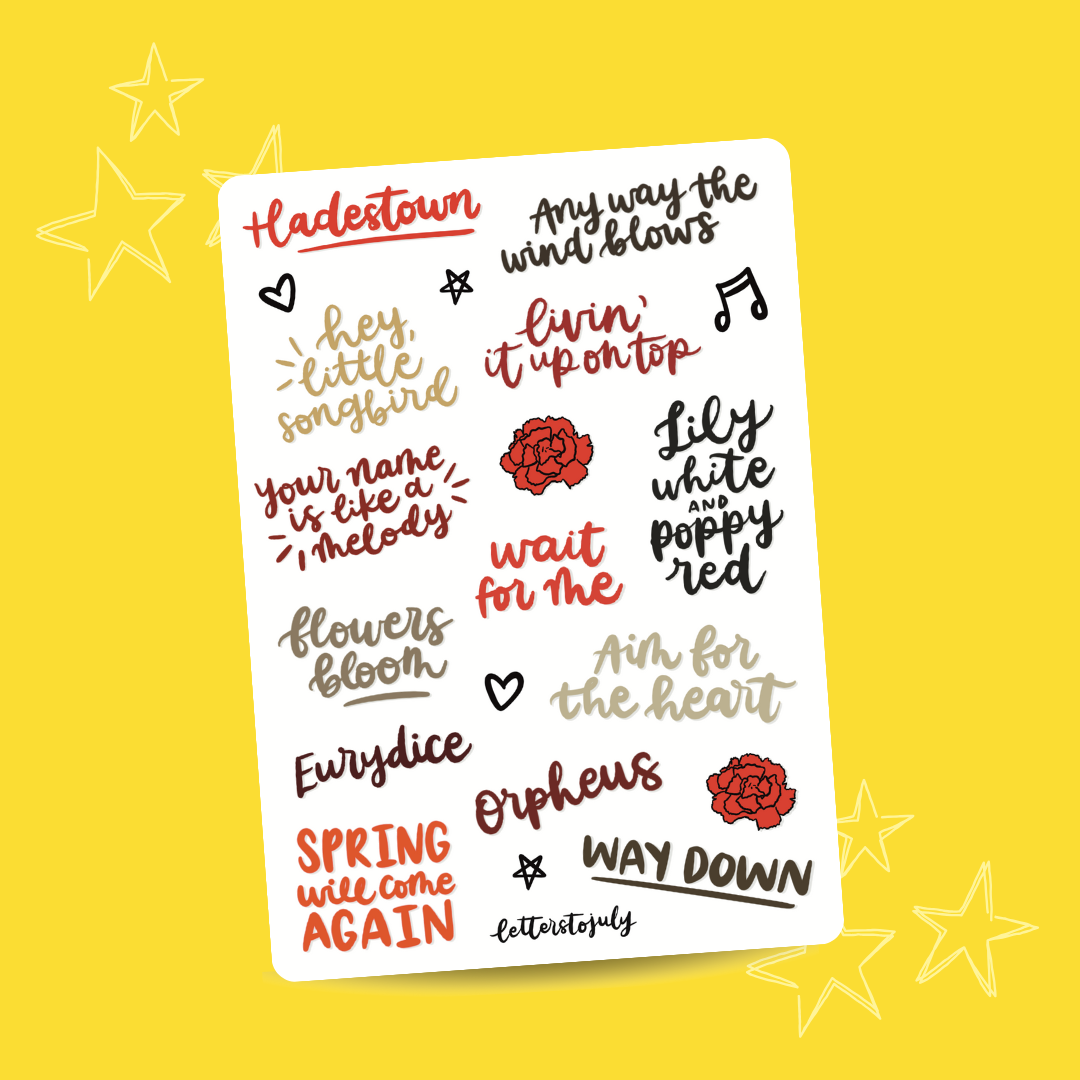 Hadestown
Any way the
wind blows
hey,
little
songbird
livin'
it up on top
Lily
white
AND
poppy
red
your name
is like a
melody
wait
for me
flowers
bloom
Aim for
the heart
Eurydice
Orpheus
SPRING
will come
AGAIN
WAY DOWN
letterstojuly